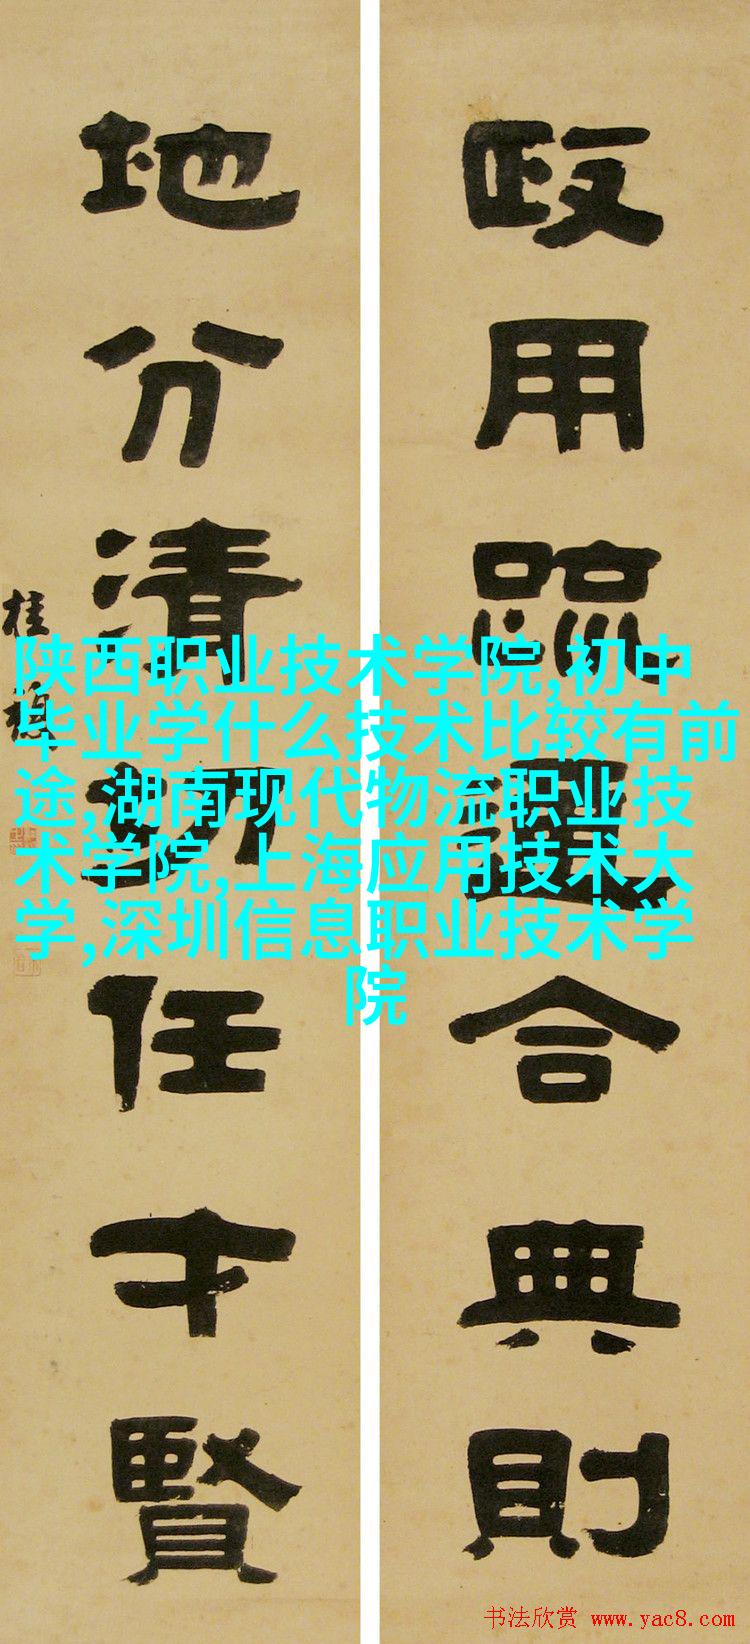 政用疏通合典則
地分清切任才賢
桂馥
陕西职业技术学院,初中
毕业学什么技术比较有前
途,湖南现代物流职业技
术学院,上海应用技术大
学,深圳信息职业技术学
院
书法欣赏 www.yac8.com